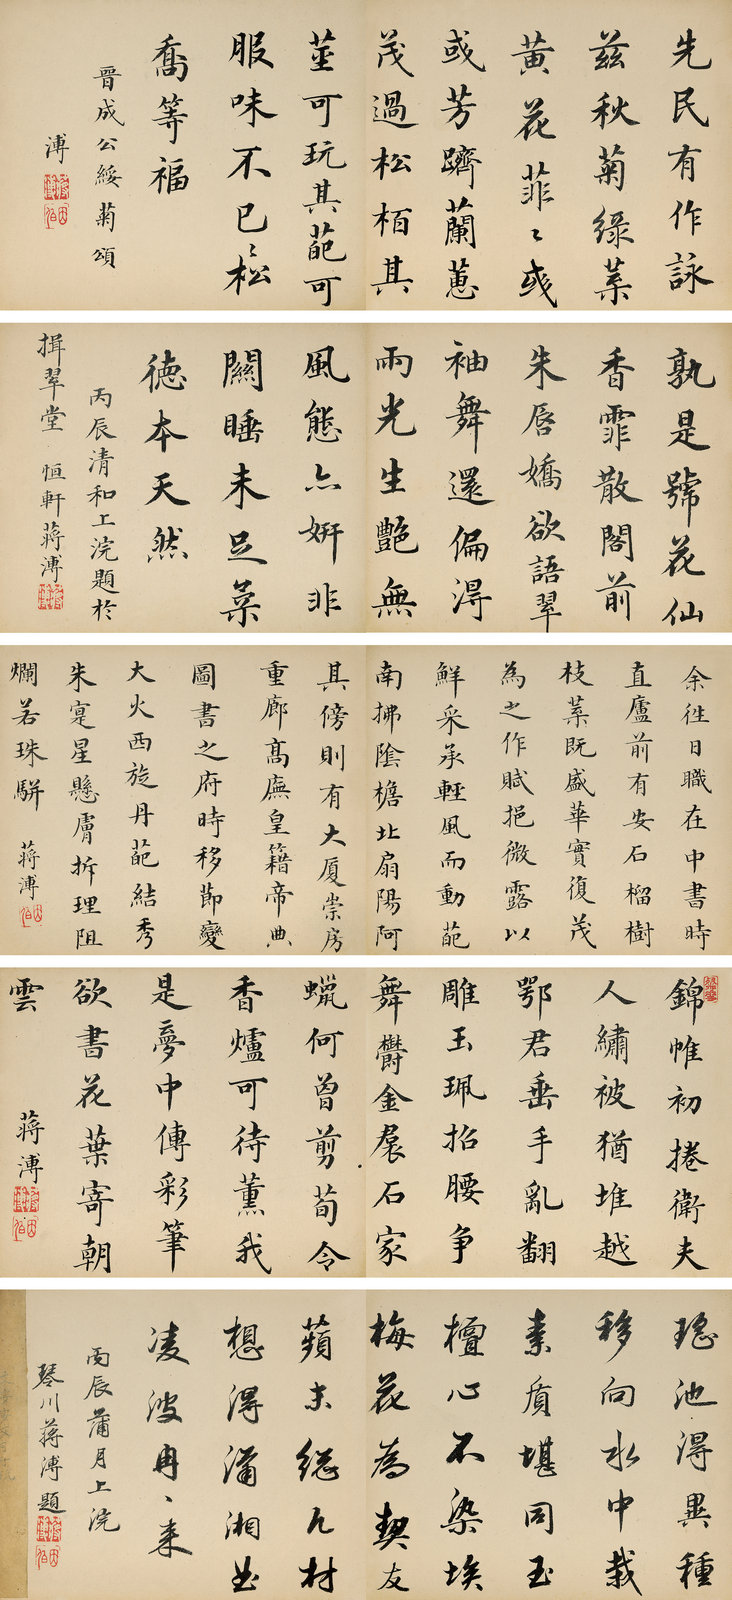 先民有作詠
茲秋菊綠葉
黃花菲〻彧
彧芳躋蘭蕙
茂過松栢其
莖可玩其葩可
服味不已〻松
喬等福
晉成公綏菊頌
溥
孰是號花仙
香霏散閣前
朱唇嬌欲語翠
袖舞還偏淂
雨光生艷無
風態亦妍非
關睡未足葉
徳本天然
丙辰清和上浣題於
揖翠堂 恒軒蔣溥
余徃日職在中書時
直廬前有安石榴樹
枝葉既盛華實復茂
為之作賦挹微露以
鮮采承輕風而動葩
南拂陰檐北扇陽阿
其傍則有大厦崇房
重廊高廡皇籍帝典
圖書之府時移節變
大火西旋丹葩結秀
朱寔星懸膚拆理阻
爛若珠駢 蔣溥
錦帷初捲衛夫
人繡被猶堆越
鄂君垂手亂翻
雕玉珮招腰争
舞欝金裠石家
蠟何曾剪荀令
香爐可待薰我
是夢中傳彩筆
欲書花葉寄朝
雲
蔣溥
瑤池得異種
移向水中栽
素質堪同玉
檀心不染埃
梅花為契友
蘋末總凡材
想淂瀟湘曲
凌波冉丶来
丙辰蒲月上浣
琴川蔣溥題